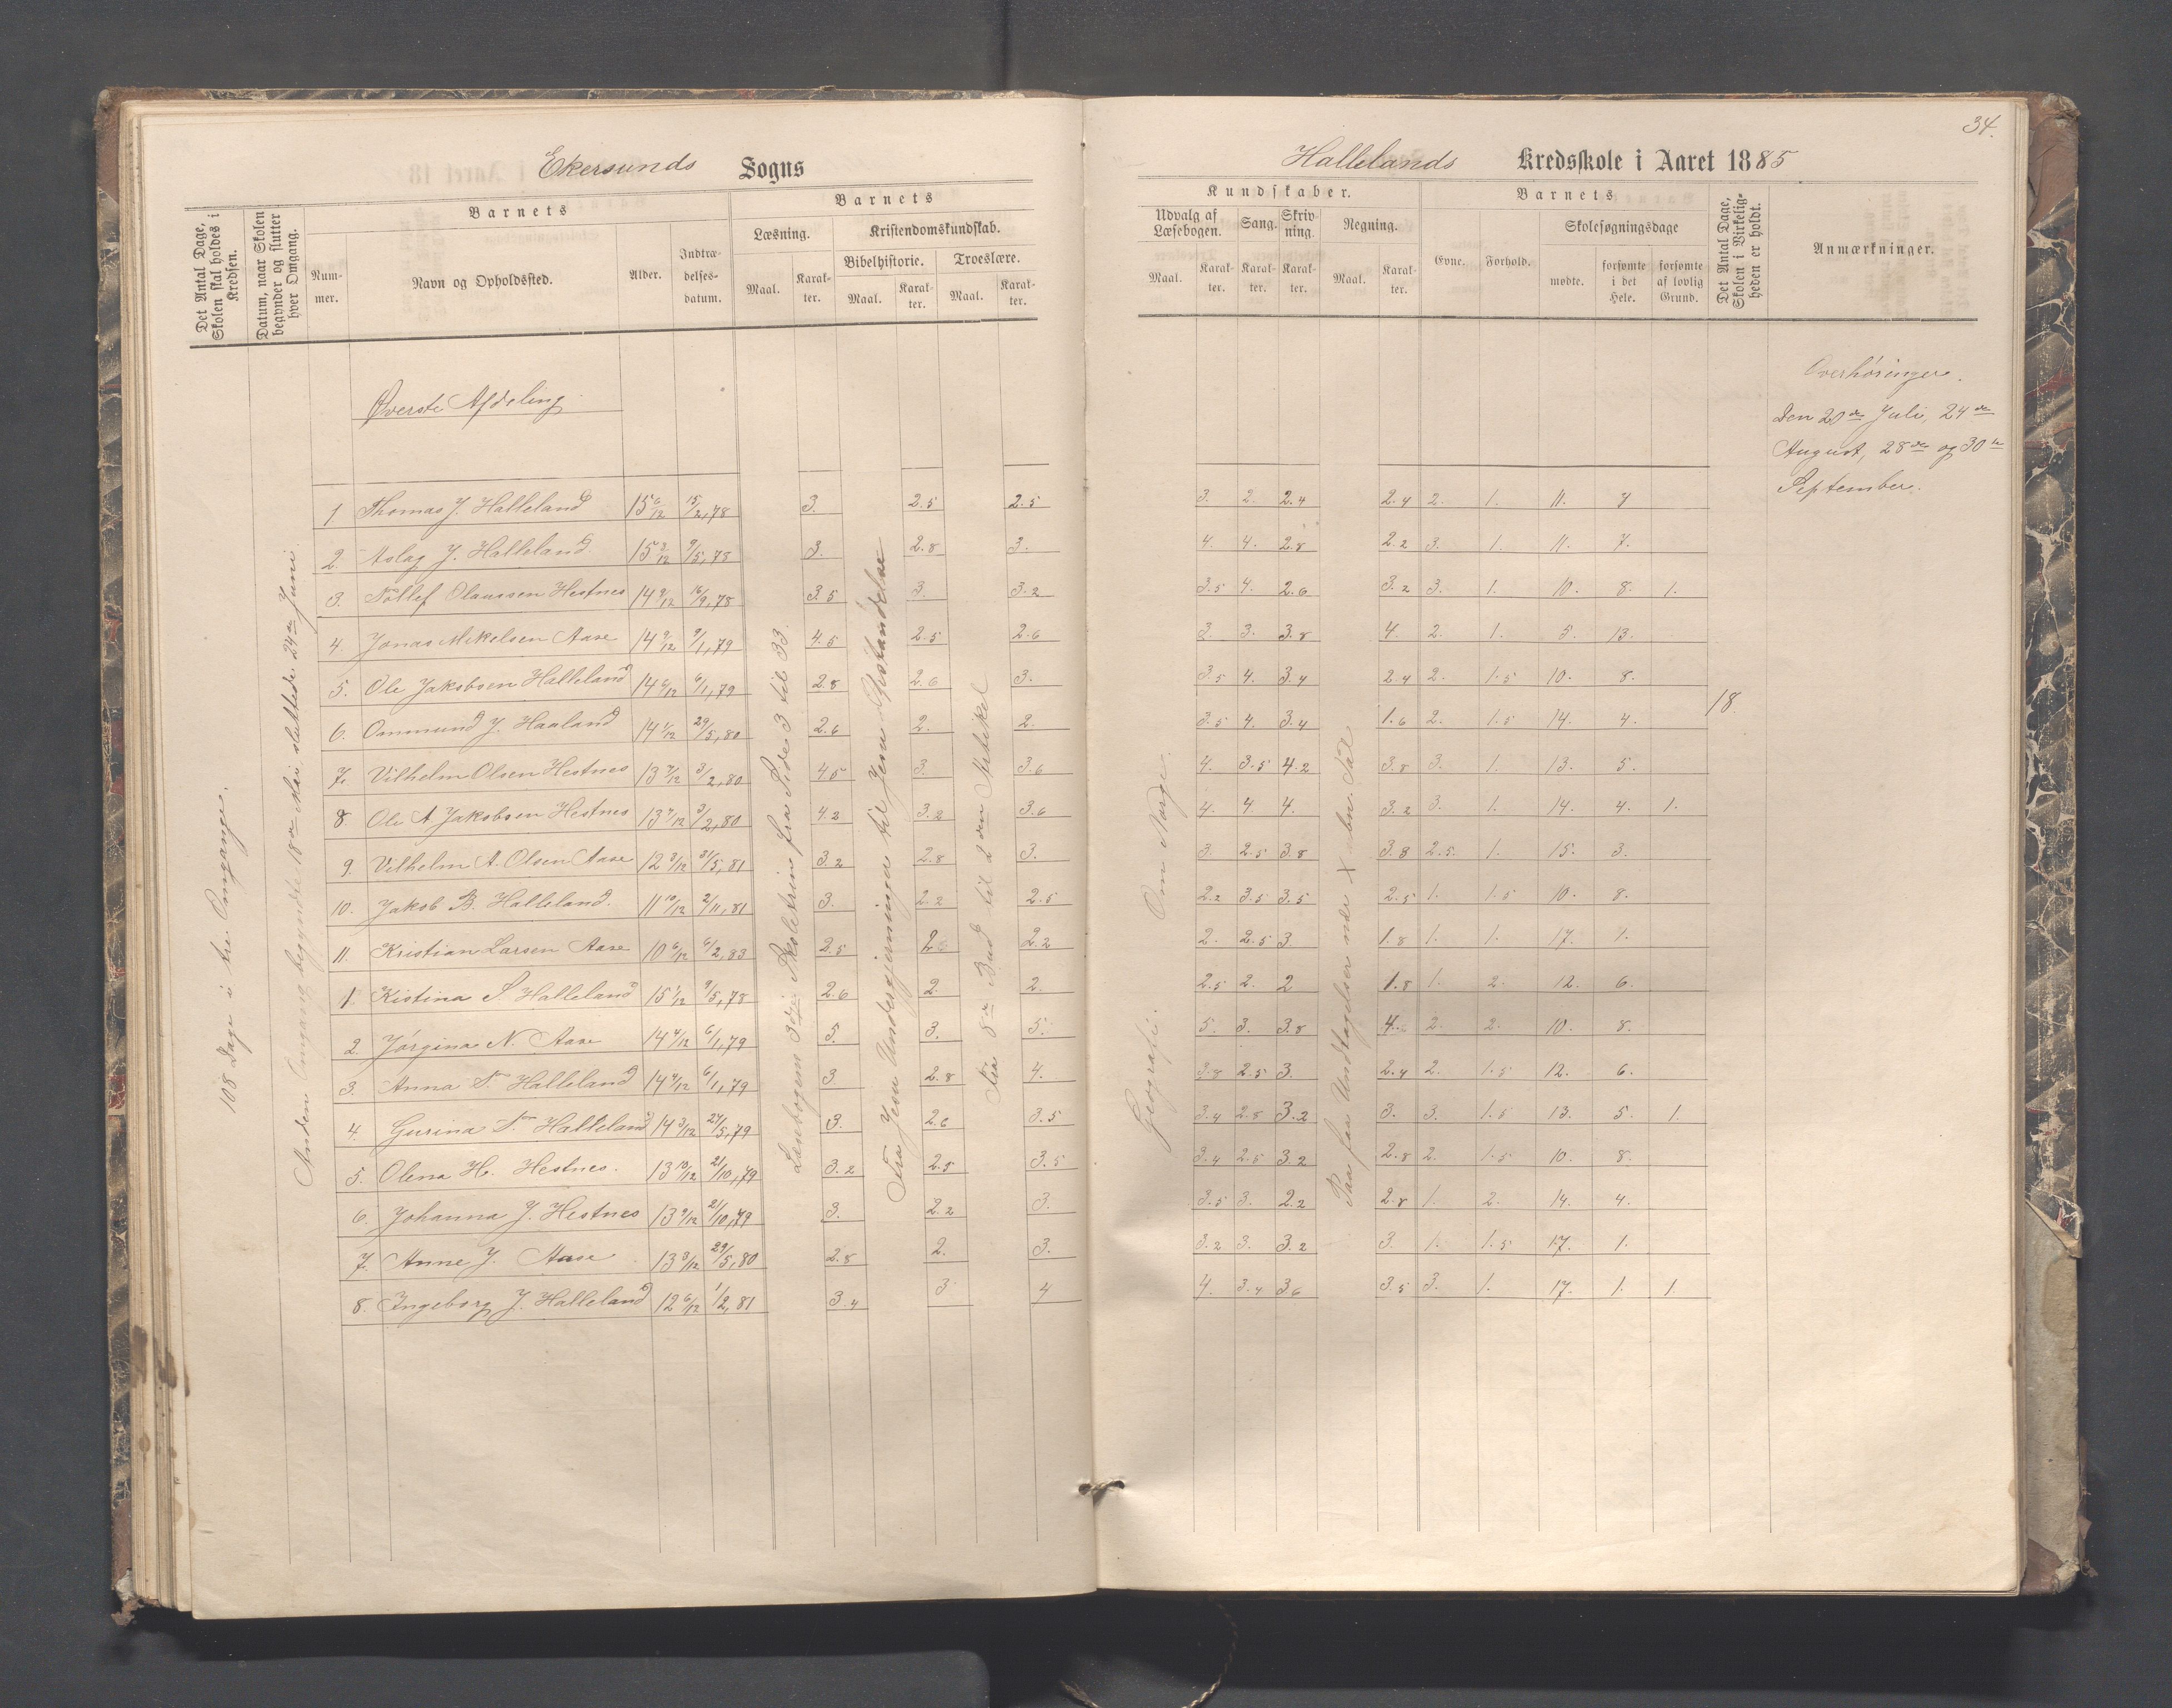 34.
Ekersunds Sogns
Hallelands Kredsskole i Aaret 1885
Det Antal Dage, Skolen skal holdes i Kredsen.
Datum, naar Skolen begynder og slutter hver Omgang.
Barnets
Nummer.
Navn og Opholdssted.
Alder.
Indtrædelsesdatum.
Barnets
Læsning.
Maal.
Karakter.
Kristendomskundskab.
Bibelhistorie.
Maal.
Karakter.
Troeslære.
Maal.
Karakter.
Kundskaber.
Udvalg af Læsebogen.
Maal.
Karakter.
Sang.
Karakter.
Skrivning.
Karakter.
Regning.
Maal.
Karakter.
Barnets
Evne.
Forhold.
Skolesøgningsdage
mødte.
forsømte i det Hele.
forsømte af lovlig Grund.
Det Antal Dage, Skolen i Virkeligheden er holdt.
Anmærkninger.
Øverste Afdeling
108 Dage i tre Omgange.
Anden Omgang begyndte 18de Mai sluttede 24de Juni.
Læsebogens 3die Skoletrin fra Side 3 til 33.
Fra Jesu Undergjerninger til Jesu Opstandelse
Fra 8de Bud til 2den Artikel
Geografi. Om Norge.
18.
Overhøringer.
Den 20de Juli, 24de
August, 28de og 30te
September.
1 Thomas J. Halleland 15 6/12 15/2,78 3. 2.5 2.5 3. 2. 2.4 2.4 2. 1. 11. 7
2. Aslag J. Halleland 15 3/12 9/5,78 3. 2.8 3. 4. 4. 2.8 2.2 3. 1. 11. 7.
3. Tollef Olaussen Hestnes 14 9/12 16/9,78 3.5 3. 3.2 3.5 4. 2.6 3.2 3. 1. 10. 8. 1.
4. Jonas Mikelsen Aase 14 9/12 9/1,79 4.5 2.5 2.6 3. 3. 3.8 4. 2. 1. 5. 13.
5. Ole Jakobsen Halleland 14 6/12 6/1,79 2.8 2.6 3. 3.5 4. 3.4 2.4 2. 1.5 10. 8.
6. Ommund J. Haaland 14 1/12 29/5,80 2.6 2. 2. 3.5 4. 3.4 1.6 2. 1.5 14. 4.
7. Vilhelm Olsen Hestnes 13 7/12 3/2,80 4.5 3. 3.6 4. 3.5 4.2 3.8 3. 1. 13. 5.
8. Ole A. Jakobsen Hestnes 13 7/12 3/2,80 4.2 3.2 3.6 4. 4. 4. 3.2 3. 1. 14. 4. 1.
9. Vilhelm A. Olsen Aase 12 3/12 31/5,81 3.2 2.8 3. 3. 2.5 3.8 3.8 2.5. 1. 15. 3.
10. Jakob B. Halleland. 11 10/12 2/11,81 3. 2.2 2.5 2.2 3.5 3.5 2.5 1. 1.5 10. 8.
11. Kristian Larsen Aase 10 6/12 6/2,83 2.5 2.6 2.2 2. 2.5 3. 1.8 1. 1. 17. 1.
1. Kistina S. Halleland 15 1/12 9/5,78 2.6 2. 2. 2.5 2. 2 1.8 1. 2. 12. 6.
2. Jørgina N. Aase 14 4/12 6/1,79 5. 3. 5. 5. 3. 3.8 4. 2. 2. 10. 8.
3. Anna T. Halleland 14 4/12 6/1,79 3. 2.8 4. 3.8 2.5 3. 2.4 2. 1.5 12. 6.
4. Gurina T. Halleland 14 3/12 27/5,79 3. 2.6 3.5 3.4 2.8 3.2 3. 3. 1.5 13. 5. 1.
5. Olena H. Hestnes. 13 10/12 21/10,79 3.2 2.5 3.5 3.4 2.5 3.2 2.8 2. 1.5 10. 8.
6. Johanna J. Hestnes 13 9/12 21/10,79 3. 2.2 3. 3.5 3. 2.2 2.8 1. 2. 14. 4.
7. Anne J. Aase 13 3/12 29/5,80 2.8 2. 3. 3.2 3. 3.2 3. 1. 1.5 17. 1.
8. Ingeborg J. Halleland 12 6/12 1/2,81 3.4 3 4 4. 3.4 3.6 3.5 3. 1. 17. 1. 1.